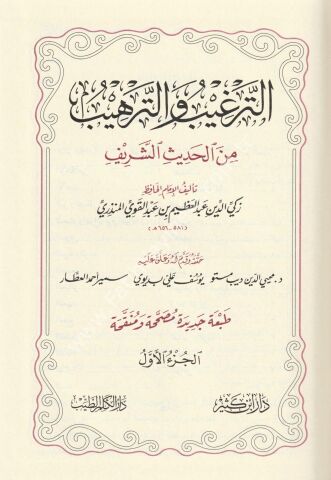 الترغيب والترهيب
من الحديث الشريف
تأليف الإمام الحافظ
زكي الدين عبد العظيم بن عبد القوي المنذري
(٥٨١ - ٦٥٦ هـ)
حققه وقدم له وعلق عليه
د. محيي الدين ديب مستو يوسف علي بديوي سمير أحمد العطار
طبعة جديدة مصححة ومنقحة
الجزء الأول
دار ابن كثير
دار الكلم الطيب